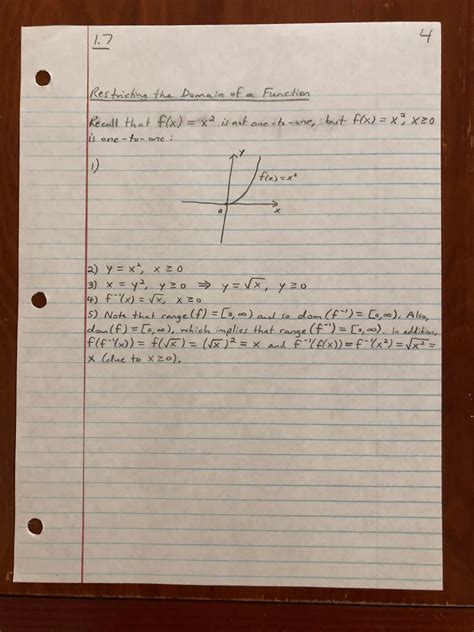 1.7 4
Restricting the Domain of a Function
Recall that f(x) = x² is not one-to-one, but f(x) = x², x≥0
is one-to-one:
1)
y
f(x)=x²
0 x
2) y = x², x ≥ 0
3) x = y², y ≥ 0 ⇒ y = √x, y ≥ 0
4) f⁻¹(x) = √x, x ≥ 0
5) Note that range (f) = [0,∞) and so dom (f⁻¹) = [0,∞). Also,
dom(f) = [0,∞), which implies that range (f⁻¹) = [0,∞). In addition,
f(f⁻¹(x)) = f(√x) = (√x)² = x and f⁻¹(f(x)) = f⁻¹(x²) = √x² =
x (due to x≥0).